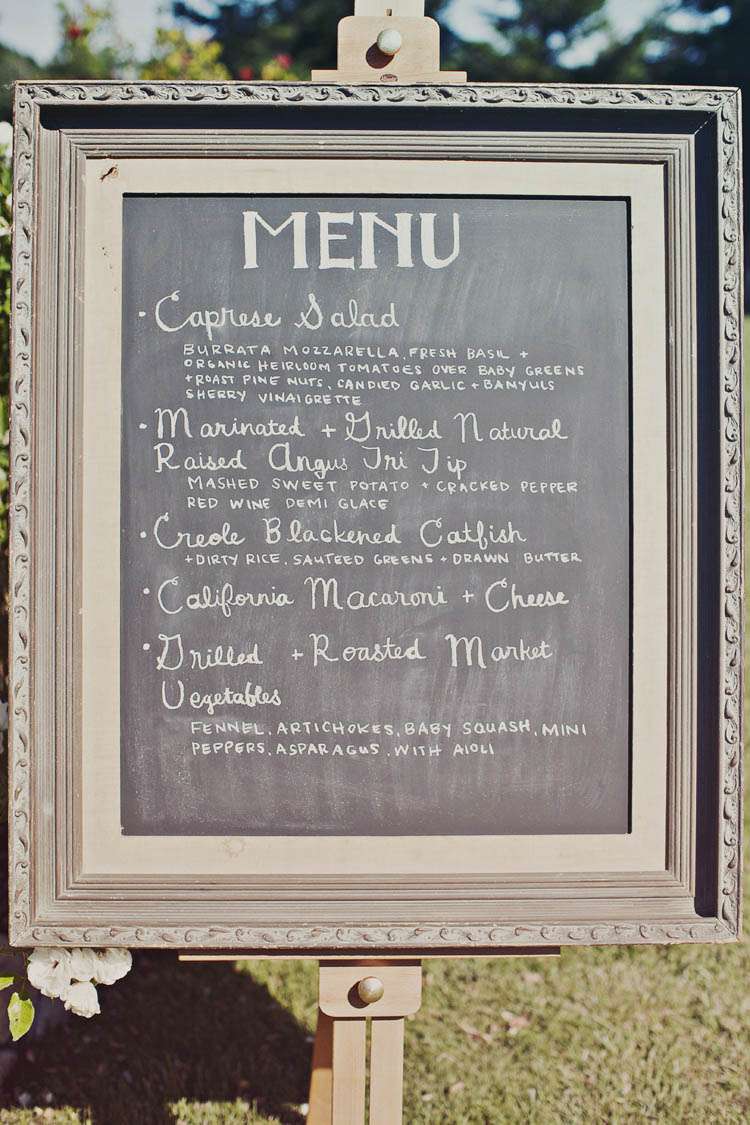 MENU
· Caprese Salad
BURRATA MOZZARELLA, FRESH BASIL +
ORGANIC HEIRLOOM TOMATOES OVER BABY GREENS
+ ROAST PINE NUTS, CANDIED GARLIC + BANYULS
SHERRY VINAIGRETTE
· Marinated + Grilled Natural
Raised Angus Tri Tip
MASHED SWEET POTATO + CRACKED PEPPER
RED WINE DEMI GLACE
· Creole Blackened Catfish
+ DIRTY RICE, SAUTEED GREENS + DRAWN BUTTER
· California Macaroni + Cheese
· Grilled + Roasted Market
Vegetables
FENNEL, ARTICHOKES, BABY SQUASH, MINI
PEPPERS, ASPARAGUS, WITH AIOLI